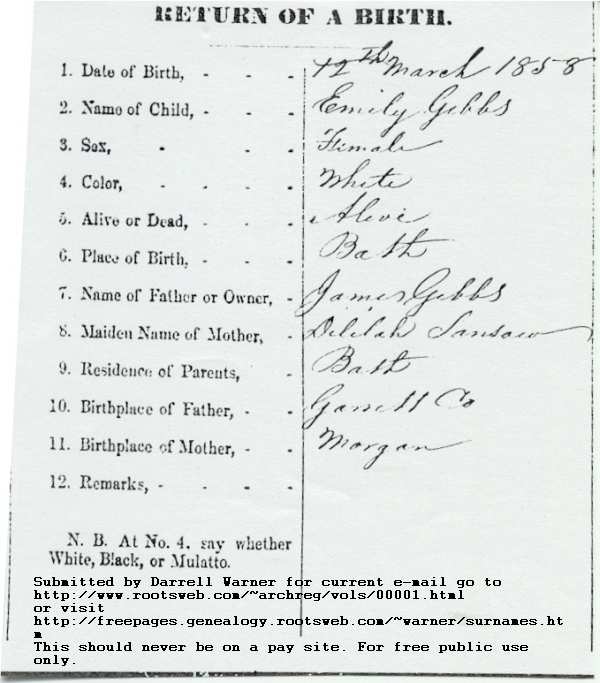 RETURN OF A BIRTH.
1. Date of Birth, - - - 12th March 1858
2. Name of Child, - - - Emily Gibbs
3. Sex, - - - Female
4. Color, - - - - White
5. Alive or Dead, - - - Alive
6. Place of Birth, - - - Bath
7. Name of Father or Owner, - James Gibbs
8. Maiden Name of Mother, - Delilah
9. Residence of Parents, - Bath
10. Birthplace of Father, - - Garrett Co
11. Birthplace of Mother, - - Morgan
12. Remarks, - - - -
N. B. At No. 4, say whether
White, Black, or Mulatto.
Submitted by Darrell Warner for current e-mail go to
http://www.rootsweb.com/~archreg/vols/00001.html
or visit
http://freepages.genealogy.rootsweb.com/~warner/surnames.ht
m
This should never be on a pay site. For free public use
only.